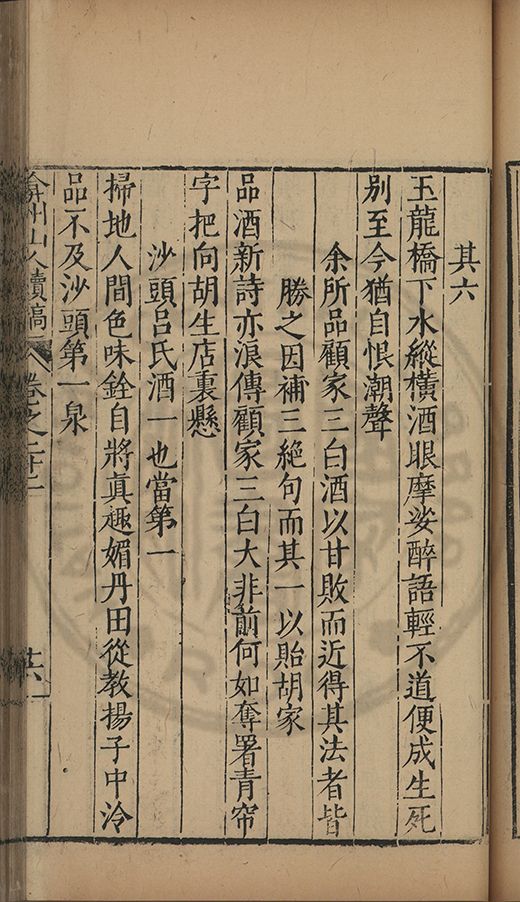 其六
玉龍橋下水縱橫酒眼摩娑醉語輕不道便成生死
别至今猶自恨潮聲
余所品顧家三白酒以甘敗而近得其法者皆
勝之因補三絕句而其一以貽胡家
品酒新詩亦浪傳顧家三白大非前何如奪署青帘
字把向胡生店裏懸
沙頭呂氏酒一也當第一
掃地人間色味銓自將真趣媚丹田從教揚子中泠
品不及沙頭第一泉
弇州山人續稿 卷之二十二 十六